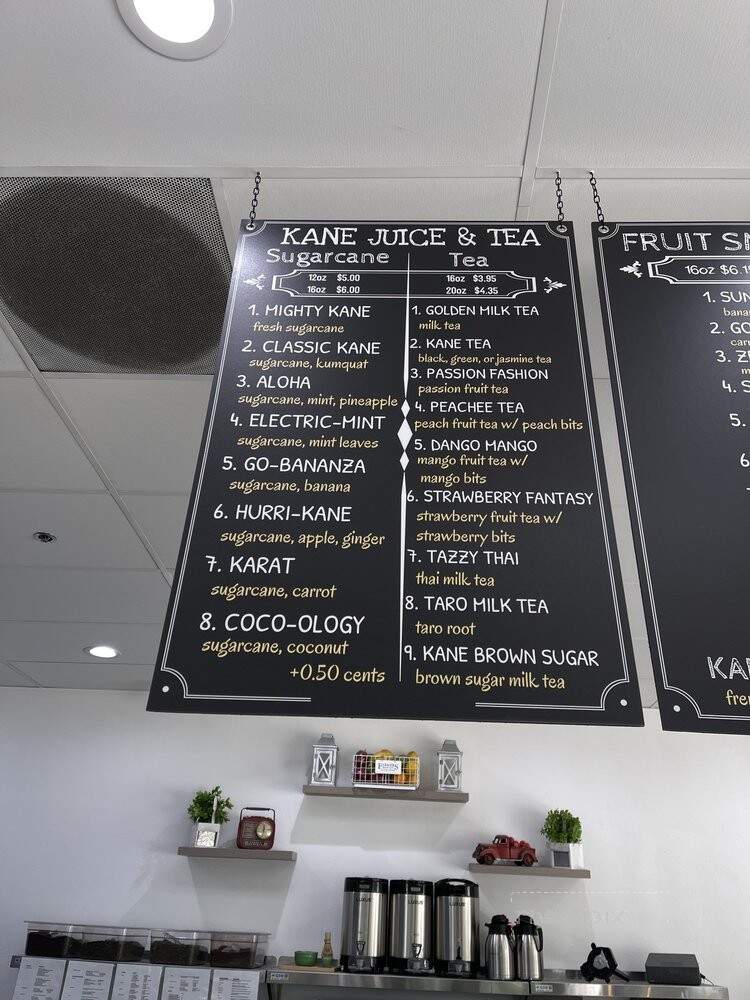 KANE JUICE & TEA
Sugarcane
12oz $5.00
16oz $6.00
1. MIGHTY KANE
fresh sugarcane
2. CLASSIC KANE
sugarcane, kumquat
3. ALOHA
sugarcane, mint, pineapple
4. ELECTRIC-MINT
sugarcane, mint leaves
5. GO-BANANZA
sugarcane, banana
6. HURRI-KANE
sugarcane, apple, ginger
7. KARAT
sugarcane, carrot
8. COCO-OLOGY
sugarcane, coconut
+0.50 cents
Tea
16oz $3.95
20oz $4.35
1. GOLDEN MILK TEA
milk tea
2. KANE TEA
black, green, or jasmine tea
3. PASSION FASHION
passion fruit tea
4. PEACHEE TEA
peach fruit tea w/ peach bits
5. DANGO MANGO
mango fruit tea w/
mango bits
6. STRAWBERRY FANTASY
strawberry fruit tea w/
strawberry bits
7. TAZZY THAI
thai milk tea
8. TARO MILK TEA
taro root
9. KANE BROWN SUGAR
brown sugar milk tea
FRUIT
16oz
1.
2.
3.
4.
5.
LUXUS
LUXUS
LUXUS